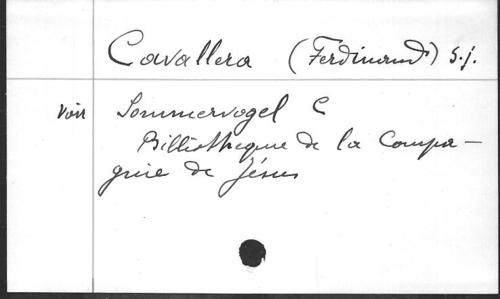 Cavallera (Ferdinand) S.J.
Voir Sommervogel C
Bibliothèque de la Compa-
gnie de Jésus